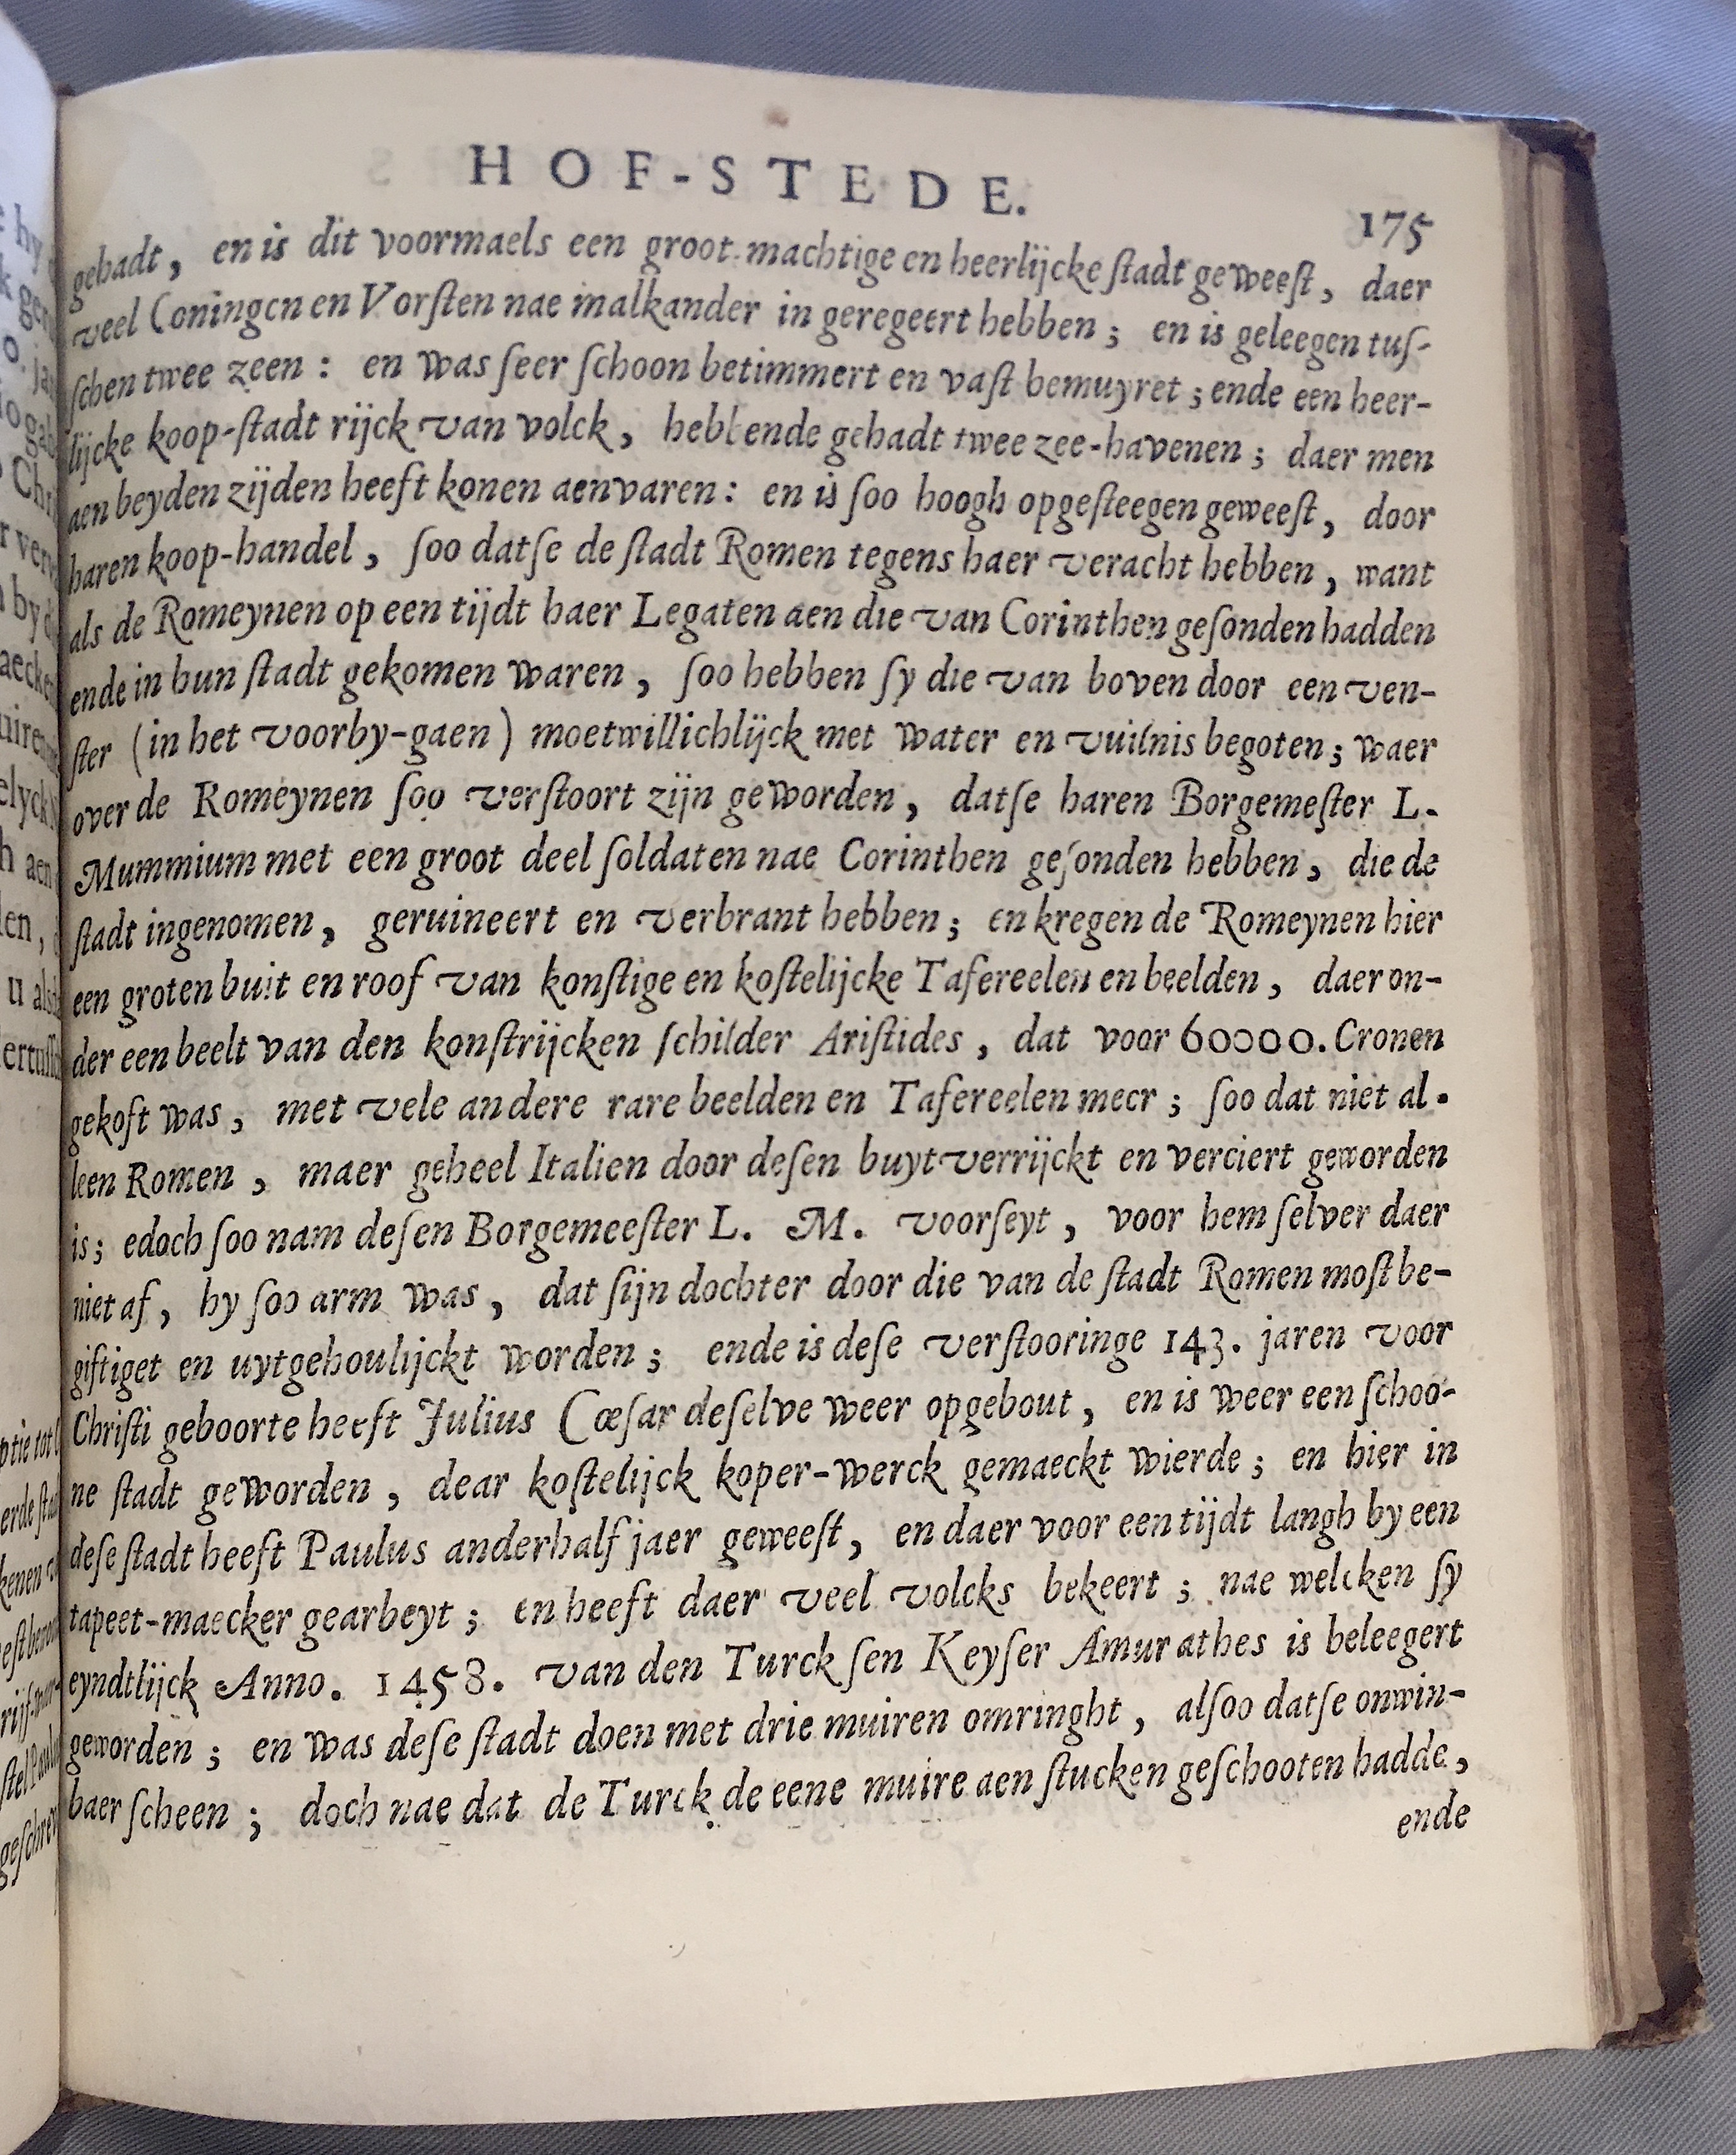 HOF-STEDE.
175
gehadt, en is dit voormaels een groot machtige en heerlijcke ſtadt geweeſt, daer
veel Coningen en Vorſten nae malkander in geregeert hebben; en is geleegen tuſ-
ſchen twee zeen: en was ſeer ſchoon betimmert en vaſt bemuyret; ende een heer-
lijcke koop-ſtadt rijck van volck, hebbende gehadt twee zee-havenen; daer men
aen beyden zijden heeft konen aenvaren: en is ſoo hoogh opgeſteegen geweeſt, door
haren koop-handel, ſoo datſe de ſtadt Romen tegens haer veracht hebben, want
als de Romeynen op een tijdt haer Legaten aen die van Corinthen geſonden hadden
ende in hun ſtadt gekomen waren, ſoo hebben ſy die van boven door een ven-
ſter (in het voorby-gaen) moetwillichlijck met water en vuilnis begoten; waer
over de Romeynen ſoo verſtoort zijn geworden, datſe haren Borgemeſter L.
Mummium met een groot deel ſoldaten nae Corinthen geſonden hebben, die de
ſtadt ingenomen, geruineert en verbrant hebben; en kregen de Romeynen hier
een groten buit en roof van konſtige en koſtelijcke Tafereelen en beelden, daer on-
der een beelt van den konſtrijcken ſchilder Ariſtides, dat voor 60000. Cronen
gekoſt was, met vele andere rare beelden en Tafereelen meer; ſoo dat niet al-
leen Romen, maer geheel Italien door deſen buyt verrijckt en verciert geworden
is; edoch ſoo nam deſen Borgemeeſter L. M. voorſeyt, voor hem ſelver daer
niet af, hy ſoo arm was, dat ſijn dochter door die van de ſtadt Romen moſt be-
giftiget en uytgehoulijckt worden; ende is deſe verſtooringe 143. jaren voor
Chriſti geboorte heeft Julius Cæſar deſelve weer opgebout, en is weer een ſchoo-
ne ſtadt geworden, dear koſtelijck koper-werck gemaeckt wierde; en hier in
deſe ſtadt heeft Paulus anderhalf jaer geweeſt, en daer voor een tijdt langh by een
tapeet-maecker gearbeyt; en heeft daer veel volcks bekeert; nae welcken ſy
eyndtlijck Anno. 1458. van den Turckſen Keyſer Amurathes is beleegert
geworden; en was deſe ſtadt doen met drie muiren omringht, alſoo datſe onwin-
baer ſcheen; doch nae dat de Turck de eene muire aen ſtucken geſchooten hadde,
ende